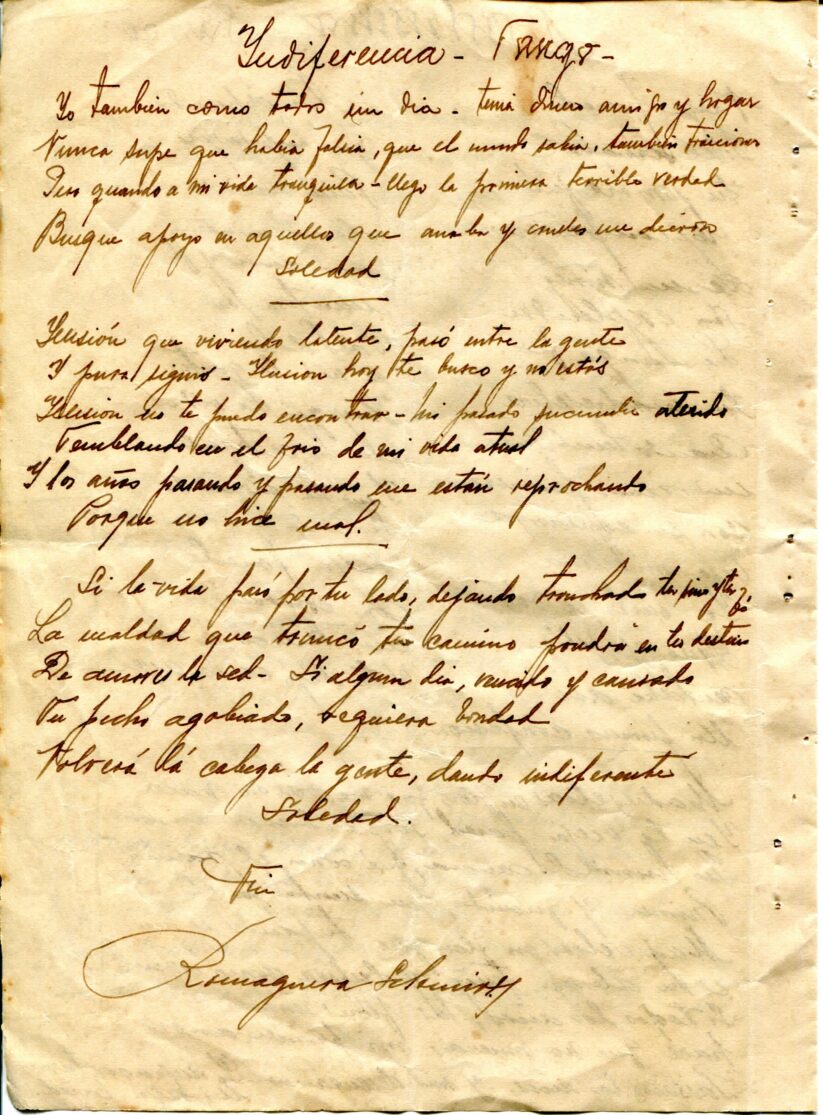 Yndiferencia - Tango -
Yo tambien como todos un dia - tenia dinero amigos y hogar
Nunca supe que habia falsia, que el mundo sabia, tambien traicionar
Pero quando a mi vida tranquila - llego la primera terrible verdad
Busque apoyo en aquellos que amaba y crueles me dieron
Soledad
Ylusión que viviendo latente, pasó entre la gente
Y pura siguio - Ylusion hoy te busco y no estás
Ylusion no te puedo encontrar - Mi pasado sucumbe aterido
Temblando en el frio de mi vida atual
Y los años pasando y pasando me están reprochando
Porque no hice mal.
Si la vida pasó por tu lado, dejando tronchado tu
La maldad que truncó tu camino pondrá en tu destino
De amores la sed - Si algun dia, vencido y cansado
Tu pecho agobiado, requiera bondad
Volverá lá cabeza la gente, dando indiferente
Soledad.
Fin
Romaguera